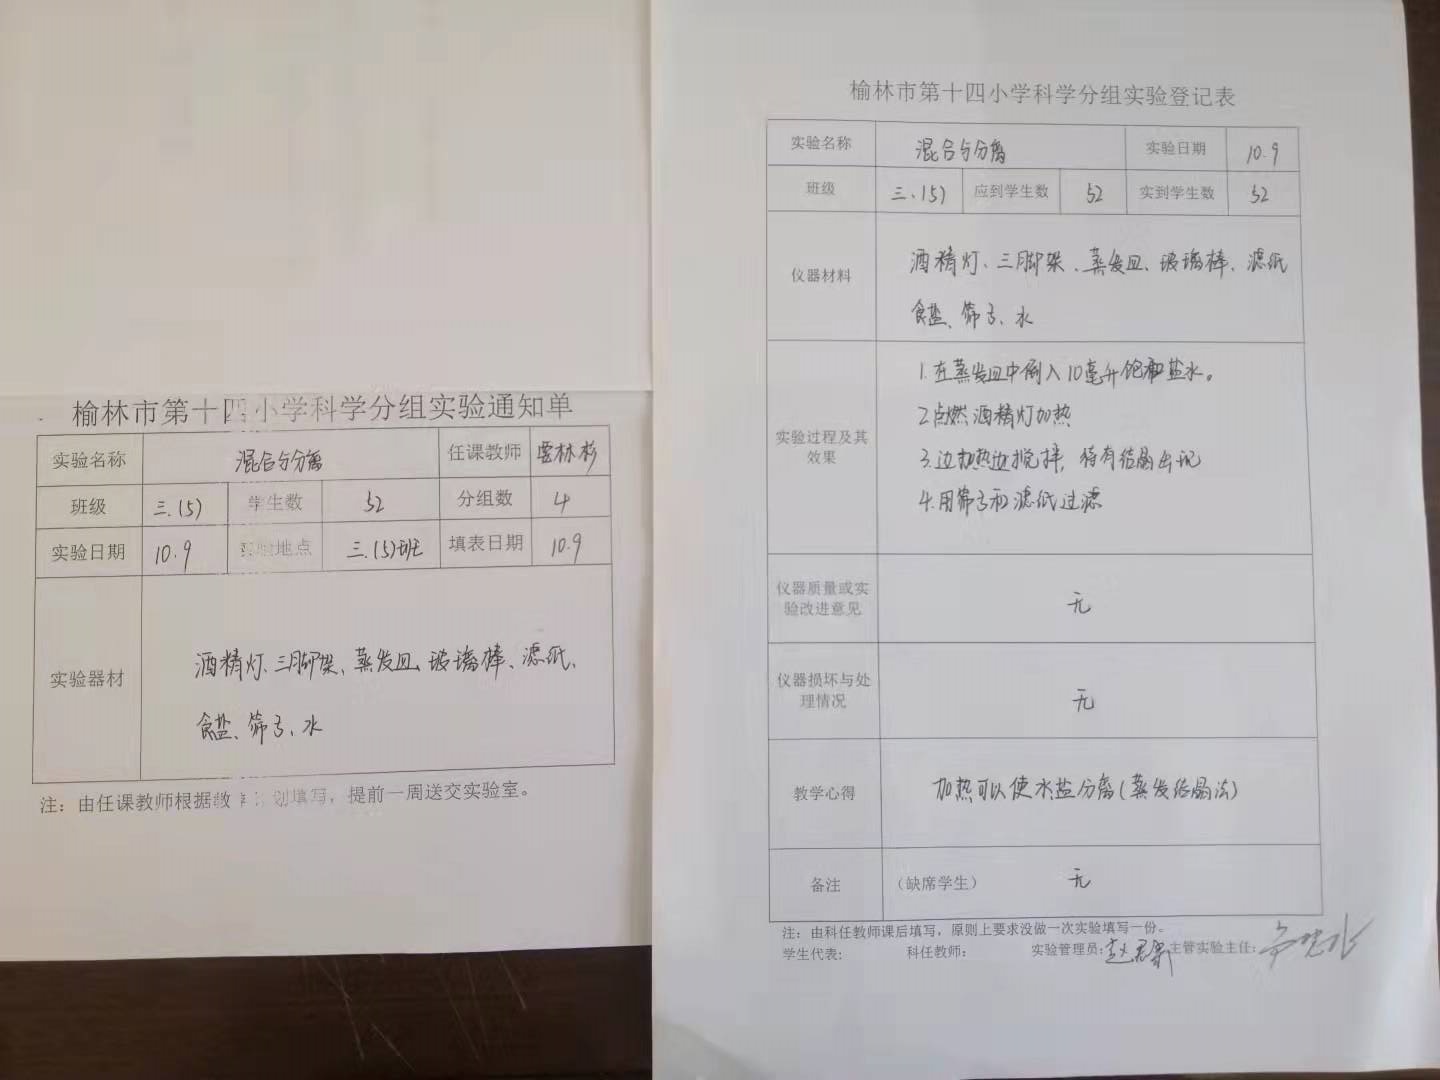 榆林市第十四小学科学分组实验通知单
实验名称 混合与分离 任课教师 林杉
班级 三.(5) 学生数 52 分组数 4
实验日期 10.9 实验地点 三.(5)班 填表日期 10.9
实验器材
酒精灯、三脚架、蒸发皿、玻璃棒、滤纸、
食盐、筛子、水
注：由任课教师根据教学计划填写，提前一周送交实验室。
榆林市第十四小学科学分组实验登记表
实验名称 混合与分离 实验日期 10.9
班级 三.(5) 应到学生数 52 实到学生数 52
仪器材料
酒精灯、三脚架、蒸发皿、玻璃棒、滤纸
食盐、筛子、水
实验过程及其
效果
1.在蒸发皿中倒入10毫升饱和盐水。
2.点燃酒精灯加热
3.边加热边搅拌，待有结晶出现
4.用筛子和滤纸过滤
仪器质量或实
验改进意见
无
仪器损坏与处
理情况
无
教学心得 加热可以使水盐分离(蒸发结晶法)
备注 （缺席学生） 无
注：由科任教师课后填写，原则上要求没做一次实验填写一份。
学生代表: 科任教师: 实验管理员: 主管实验主任: